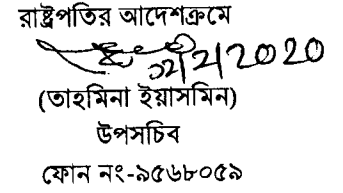 রাষ্ট্রপতির আদেশক্রমে
(তাহমিনা ইয়াসমিন)
উপসচিব
ফোন নং-৯৫৬৮০৫৯